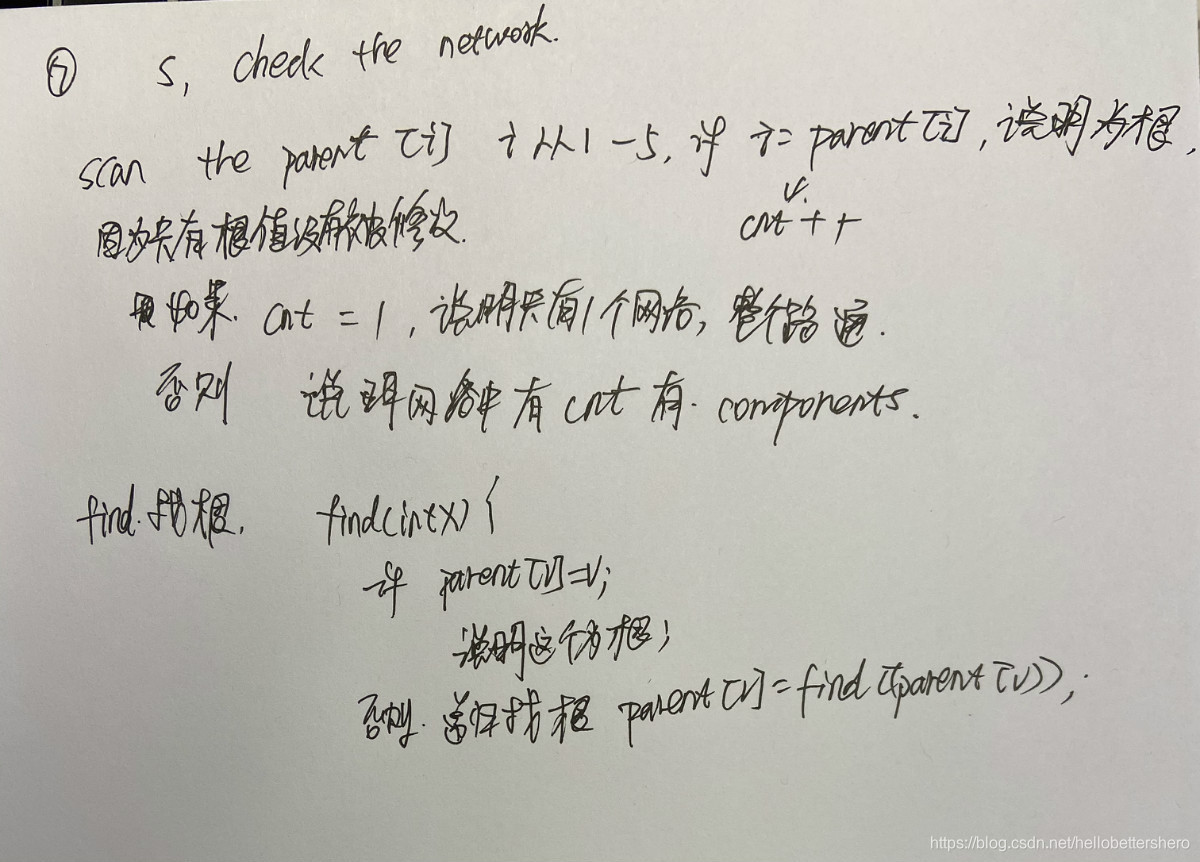 ⑦ S, check the network.
scan the parent[i] i 从1-5, if i = parent[i], 说明为根,
cnt++
因为只有根值没有被修改.
如果 cnt = 1, 说明只有1个网络, 整个路通.
否则 说明网络中有 cnt 有. components.
find. 找根. find(int x) {
if parent[v]=v;
说明这个为根;
否则. 递归找根 parent[v]=find[(parent[v]));
https://blog.csdn.net/hellobettershero